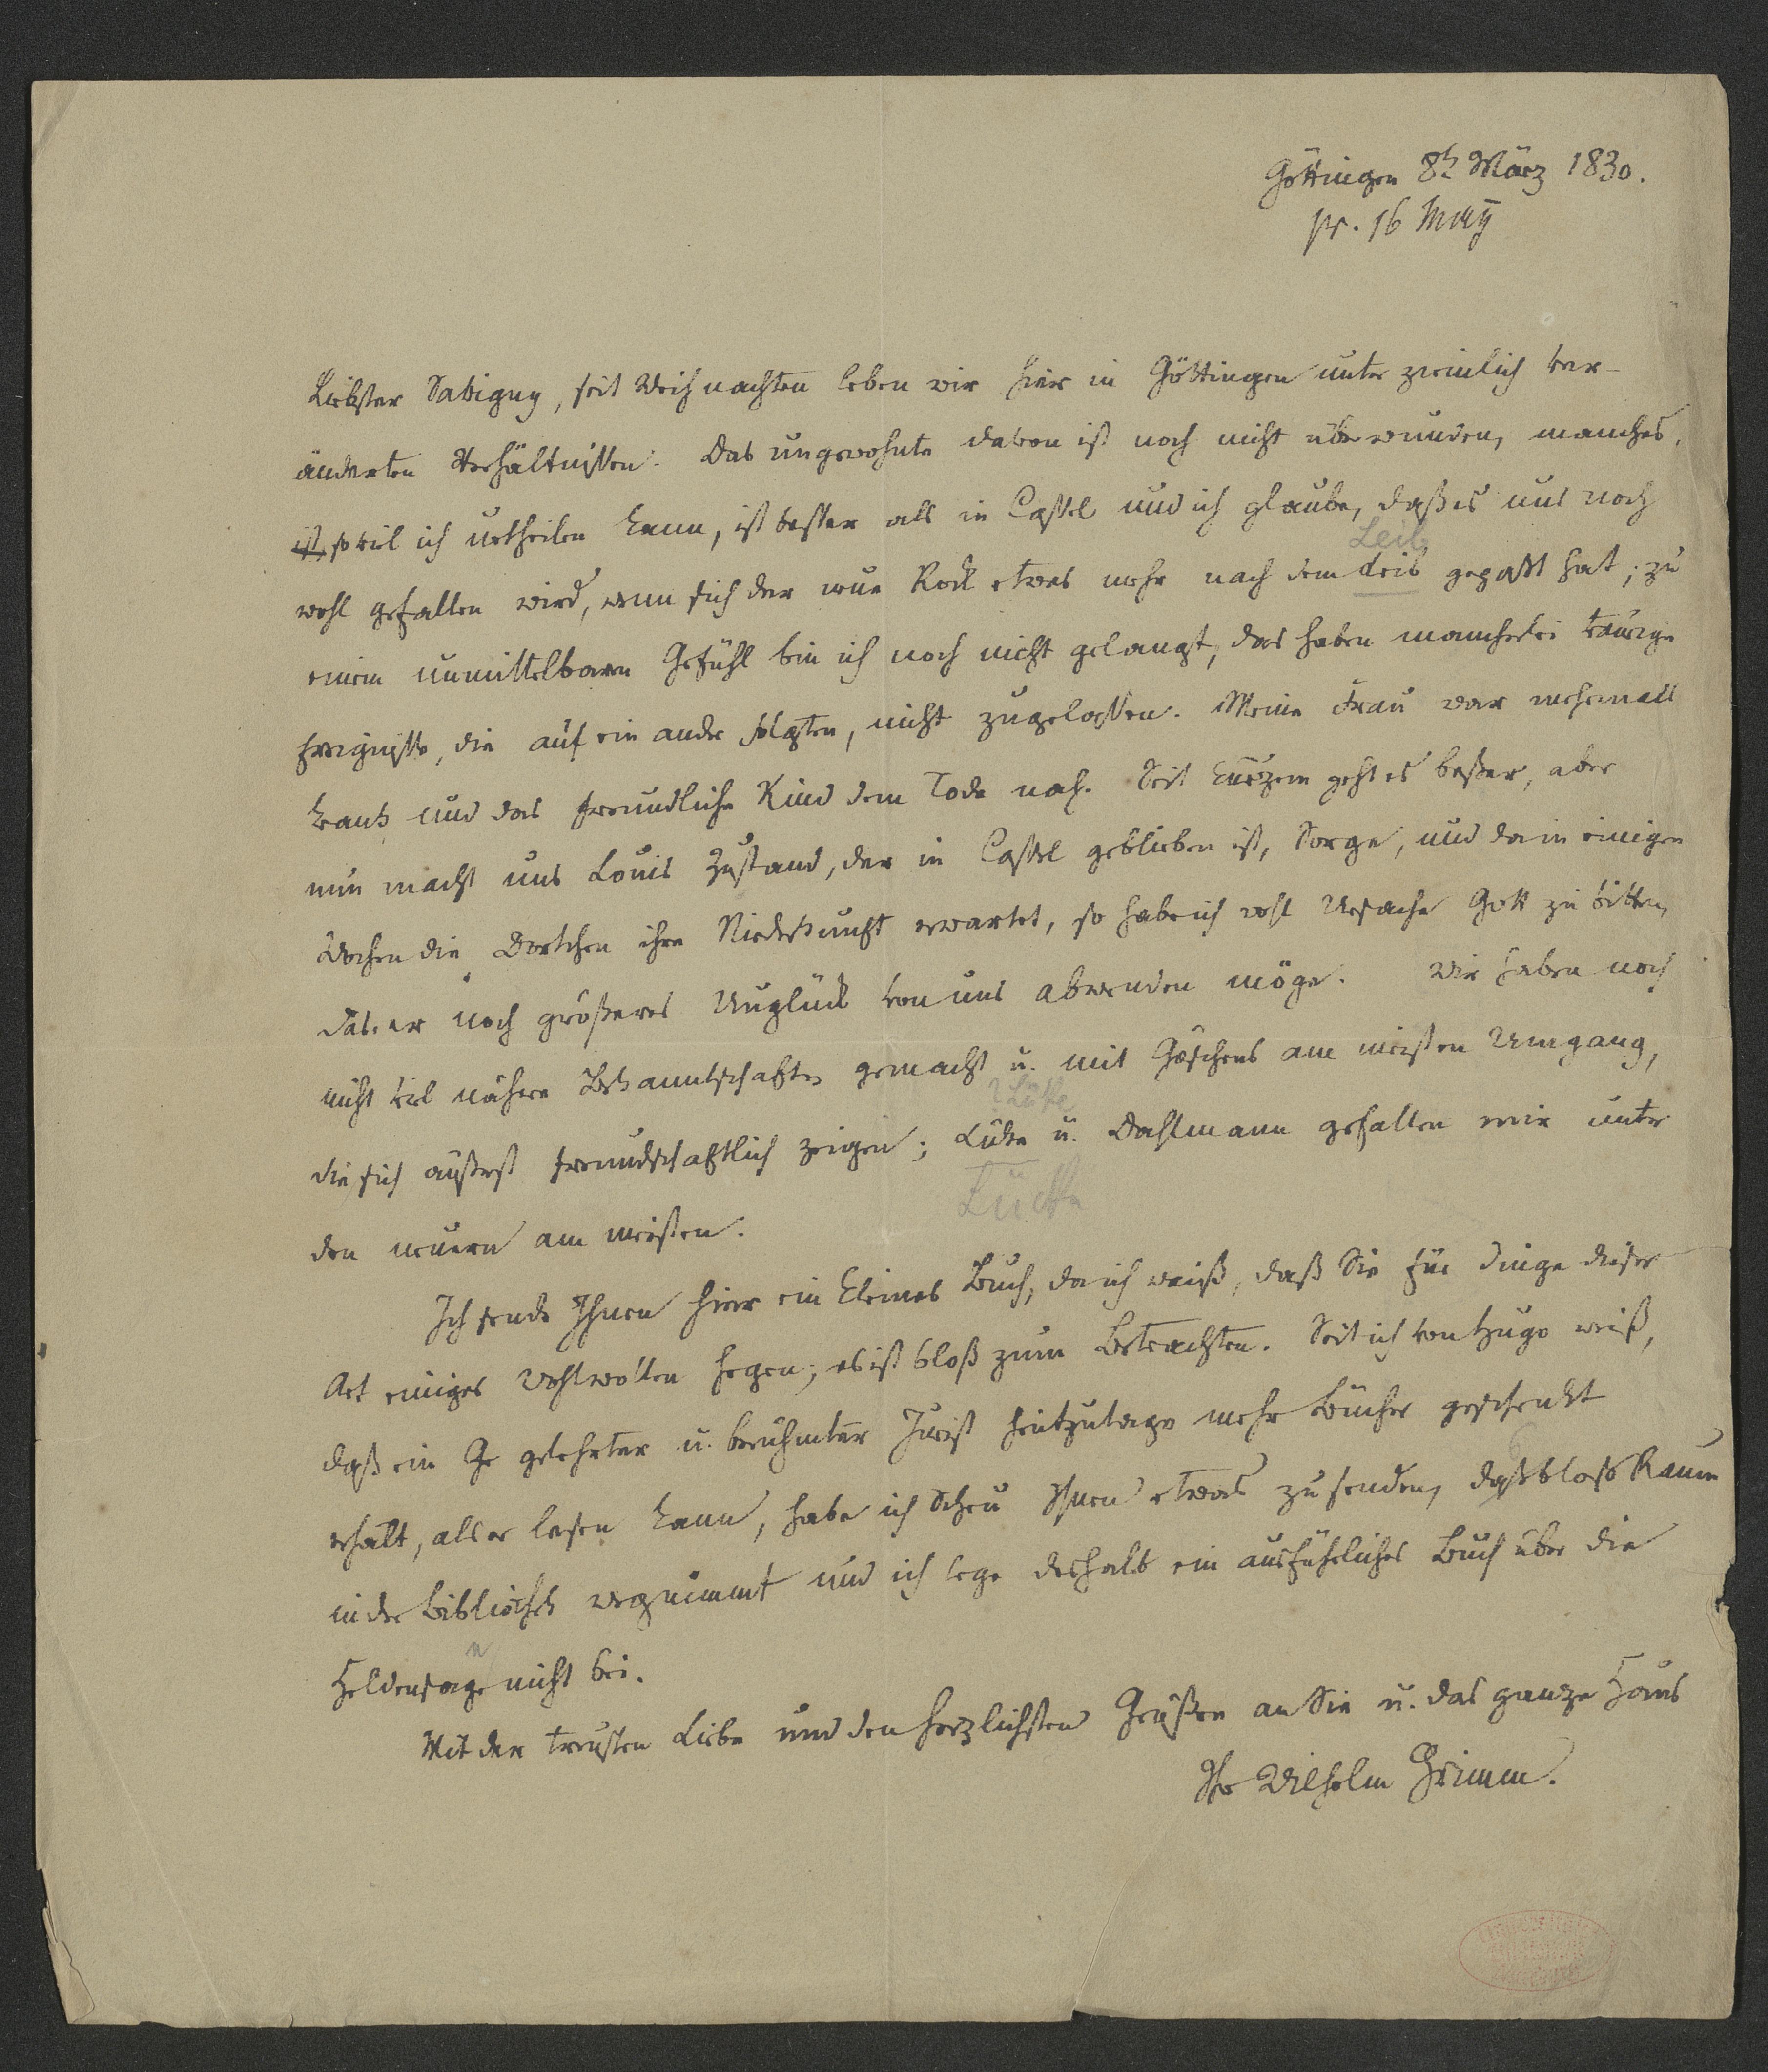 Göttingen 8t März 1830.
pr. 16 May
Liebster Savigny, seit Weihnachten leben wir hier in Göttingen unter ziemlich ver-
änderten Verhältnissen. Das ungewohnte davon ist noch nicht überwunden, manches,
ist, so viel ich urtheilen kann, ist besser als in Cassel und ich glaube, daß es uns noch
Leib
wohl gefallen wird, wenn sich der neue Rock etwas mehr nach dem Leib gepaßt hat; zu
einem unmittelbaren Gefühl bin ich noch nicht gelangt, das haben mancherlei traurige
Ereignisse, die auf ein ander folgten, nicht zugelassen. Meine Frau war mehrmals
krank und das freundliche Kind dem Tode nah. Seit kurzem geht es besser, aber
nun macht uns Louis Zustand, der in Cassel geblieben ist, Sorge, und da in einigen
Wochen die Dortchen ihre Niederkunft erwartet, so habe ich wohl Ursache Gott zu bitten,
daß er noch größeres Unglück von uns abwenden möge. Wir haben noch
nicht viel nähere Bekanntschaften gemacht u. mit Göschens am meisten Umgang,
Lüke
die sich äußerst freundschaftlich zeigen; Lüke u. Dahlmann gefallen mir unter
Lücke
den neuern am meisten.
Ich sende Ihnen hier ein kleines Buch, da ich weiß, daß Sie für Dinge dieser
Art einiges Wohlwollen hegen; es ist bloß zum Betrachten. Seit ich von Hugo weiß,
daß ein Ge gelehrter u. berühmter Jurist heutzutage mehr Bücher geschenkt
erhält, als er lesen kann, habe ich Scheu Ihnen etwas zu senden, daß bloß Raum
in der Bibliothek wegnimmt und ich lege deshalb ein ausführliches Buch über die
n
Heldensage nicht bei.
Mit der treusten Liebe und den herzlichsten Grüßen an Sie u. das ganze Haus
Ihr Wilhelm Grimm.